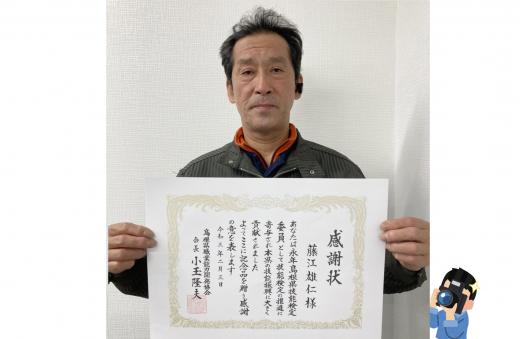 感謝状
藤江雄仁様
あなたは永年島根県技能検定
委員として技能検定の推進に
寄与され本県の技能振興に大きく
貢献されました
よってここに記念品を贈り感謝
の意を表します
令和三年二月三日
島根県職業能力開発協会
会長 小玉隆夫